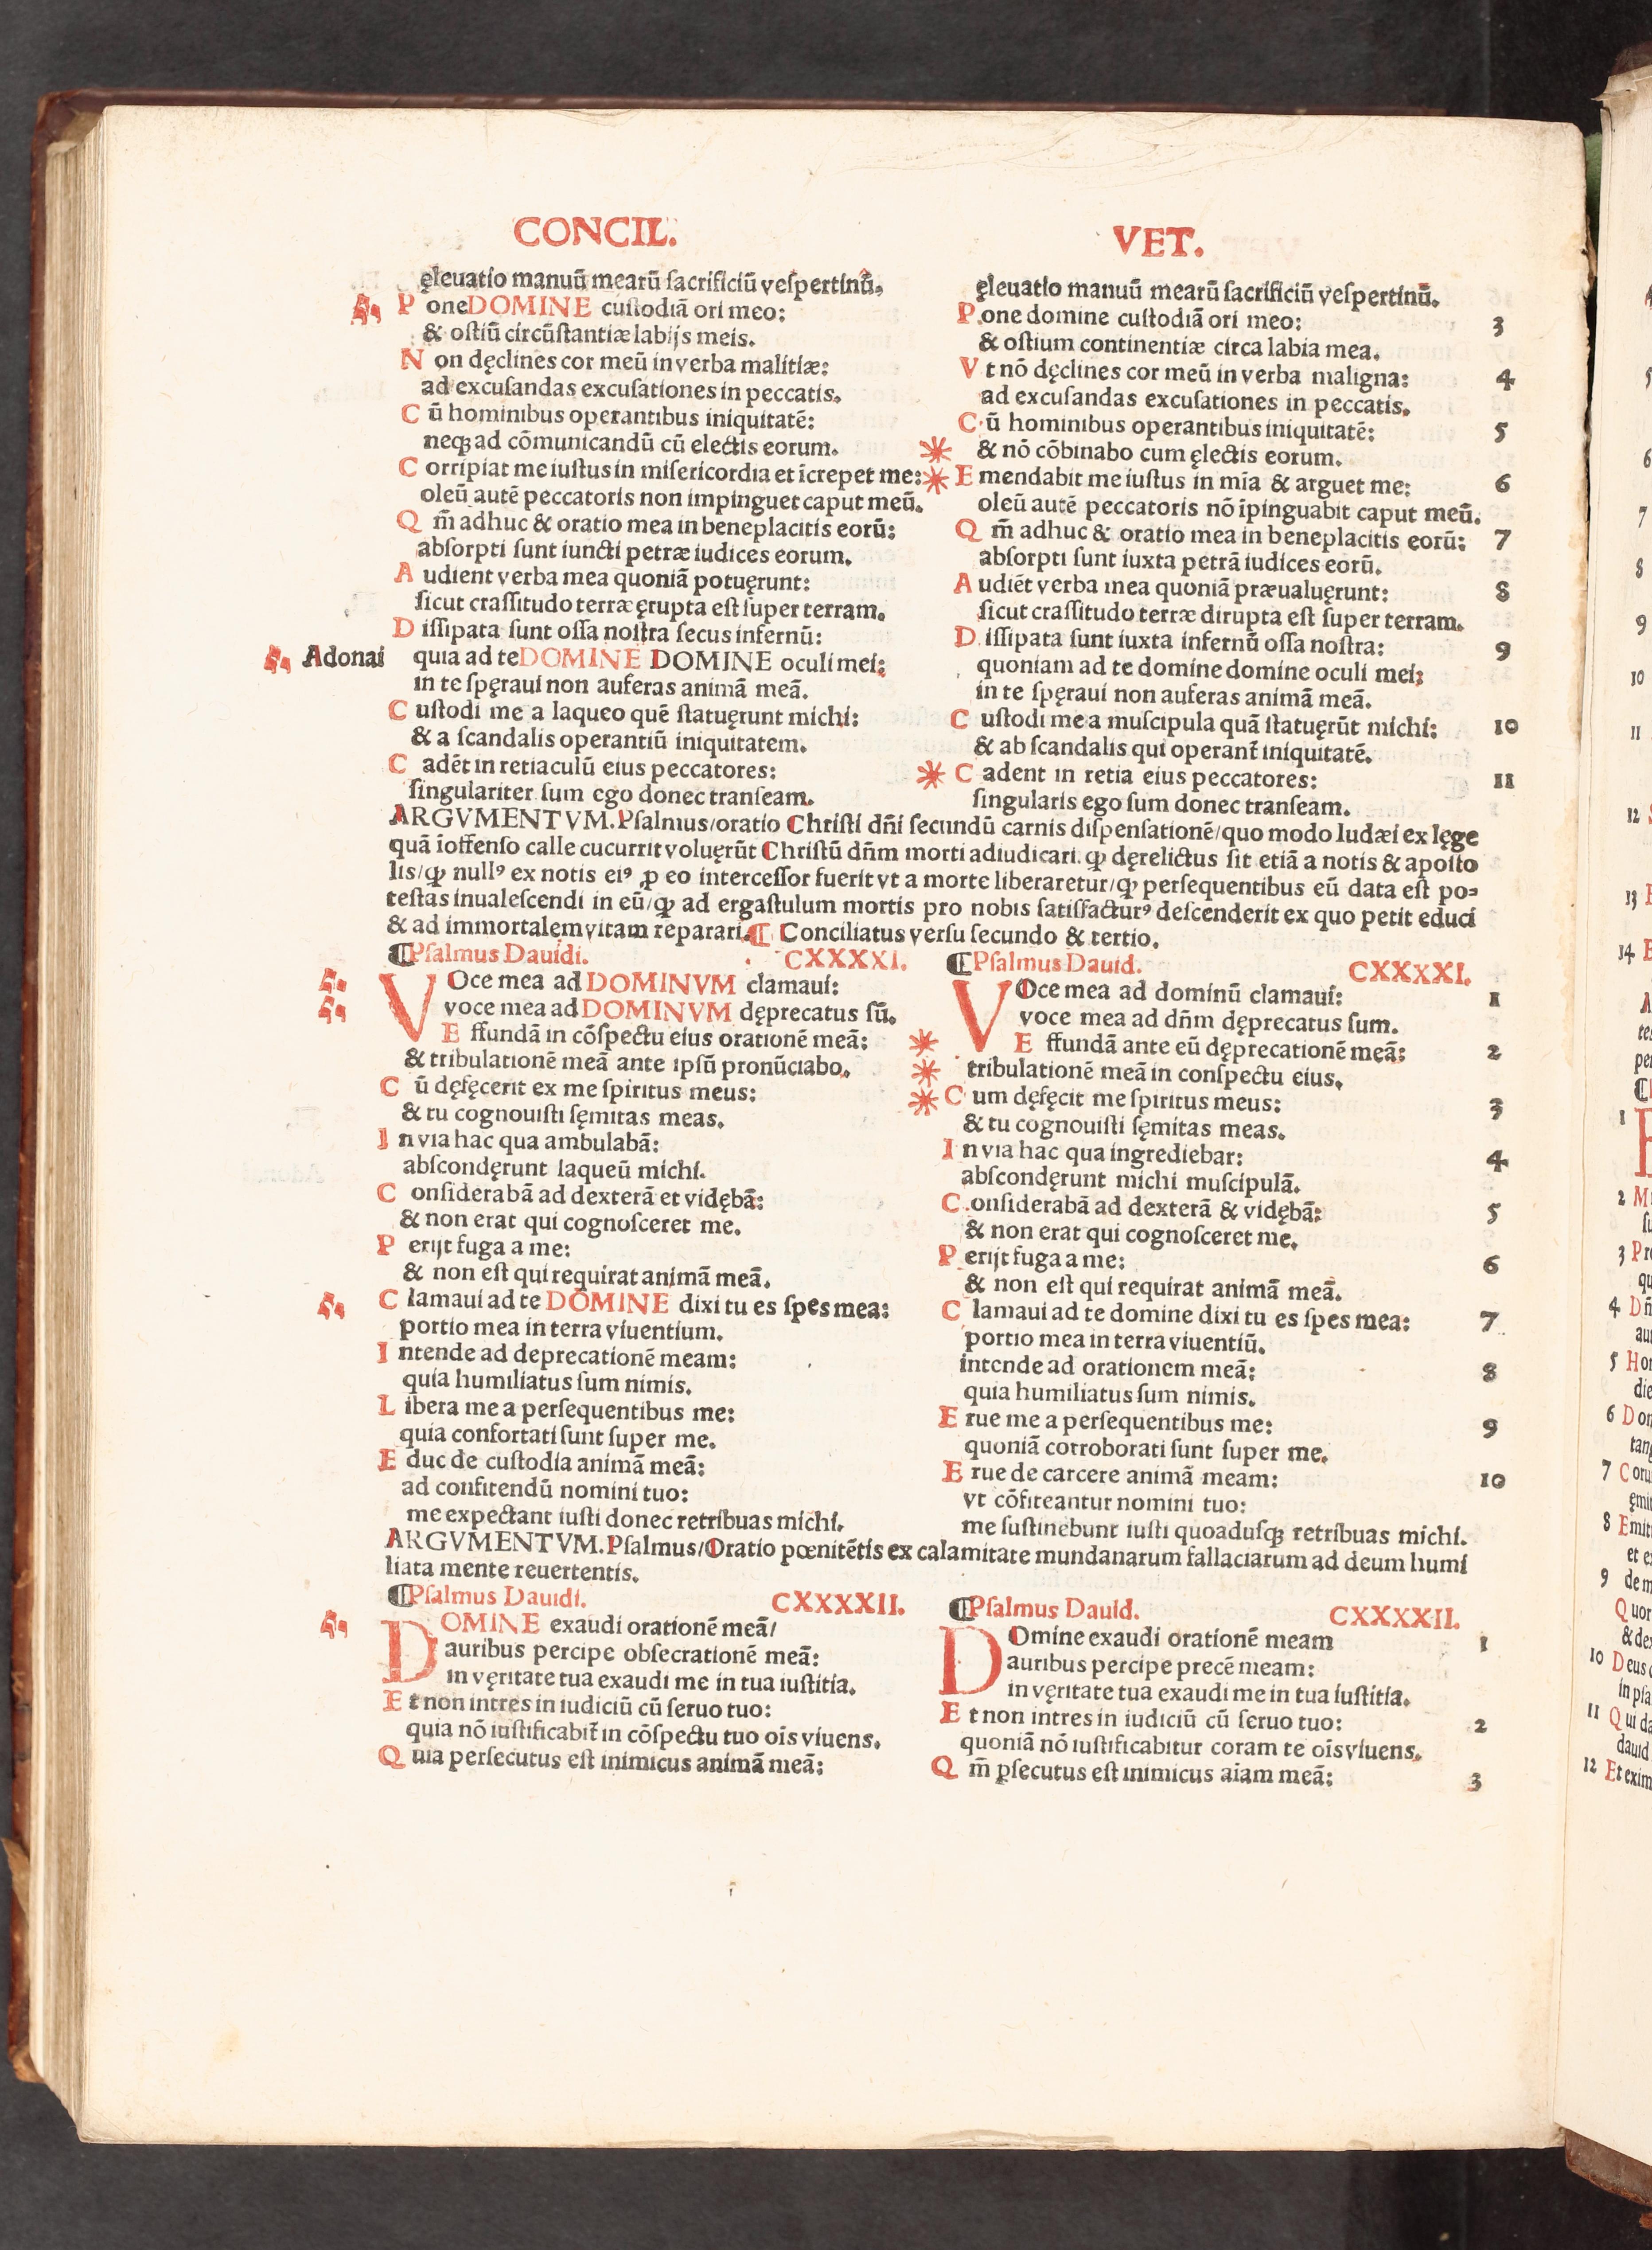 CONCIL.
ęleuatio manuū mearū ſacrificiū veſpertinū.
P oneDOMINE cuſtodiā ori meo:
& oſtiū circūſtantiæ labijs meis.
N on dęclines cor meū in verba malitiæ:
ad excuſandas excuſationes in peccatis.
C ū hominibus operantibus iniquitatē:
neqꝫ ad cōmunicandū cū electis eorum.
C orripiat me iuſtus in miſericordia et īcrepet me:
oleū autē peccatoris non impinguet caput meū.
Q m̄ adhuc & oratio mea in beneplacitis eorū:
abſorpti ſunt iuncti petræ iudices eorum.
A udient verba mea quoniā potuęrunt:
ſicut craſſitudo terræ ęrupta eſt ſuper terram.
D iſſipata ſunt oſſa noſtra ſecus infernū:
Adonai quia ad teDOMINE DOMINE oculi mei:
in te ſpęraui non auferas animā meā.
C uſtodi me a laqueo quē ſtatuęrunt michi:
& a ſcandalis operantiū iniquitatem.
C adēt in retiaculū eius peccatores:
ſingulariter ſum ego donec tranſeam.
VET.
ęleuatio manuū mearū ſacrificiū veſpertinū.
P one domine cuſtodiā ori meo: 3
& oſtium continentiæ circa labia mea.
V t nō dęclines cor meū in verba maligna: 4
ad excuſandas excuſationes in peccatis.
C ū hominibus operantibus iniquitatē: 5
& nō cōbinabo cum ęlectis eorum.
E mendabit me iuſtus in mīa & arguet me: 6
oleū autē peccatoris nō īpinguabit caput meū.
Q m̄ adhuc & oratio mea in beneplacitis eorū: 7
abſorpti ſunt iuxta petrā iudices eorū.
A udiēt verba mea quoniā præualuęrunt: 8
ſicut craſſitudo terræ dirupta eſt ſuper terram.
D iſſipata ſunt iuxta infernū oſſa noſtra: 9
quoniam ad te domine domine oculi mei:
in te ſpęraui non auferas animā meā.
C uſtodi me a muſcipula quā ſtatuęrūt michi: 10
& ab ſcandalis qui operant̄ iniquitatē.
C adent in retia eius peccatores: 11
ſingularis ego ſum donec tranſeam.
ARGVMENTVM.Pſalmus/oratio Chriſti dn̄i ſecundū carnis diſpenſationē/quo modo Iudæi ex lęge
quā īoffenſo calle cucurrit voluęrūt Chriſtū dn̄m morti adiudicari. ꝙ dęrelictus ſit etiā a notis & apoſto
lis/ꝙ nullꝰ ex notis eiꝰ ꝓ eo interceſſor fuerit vt a morte liberaretur/ꝙ perſequentibus eū data eſt po⸗
teſtas inualeſcendi in eū/ꝙ ad ergaſtulum mortis pro nobis ſatiſfacturꝰ deſcenderit ex quo petit educi
& ad immortalem vitam reparari.¶ Conciliatus verſu ſecundo & tertio.
¶Pſalmus Dauidi. CXXXXI.
VOce mea ad DOMINVM clamaui:
voce mea ad DOMINVM dęprecatus ſū.
E ffundā in cōſpectu eius orationē meā:
& tribulationē meā ante ipſū pronūciabo.
C ū dęfęcerit ex me ſpiritus meus:
& tu cognouiſti ſęmitas meas.
I n via hac qua ambulabā:
abſcondęrunt laqueū michi.
C onſiderabā ad dexterā et vidębā:
& non erat qui cognoſceret me.
P erijt fuga a me:
& non eſt qui requirat animā meā.
C lamaui ad te DOMINE dixi tu es ſpes mea:
portio mea in terra viuentium.
I ntende ad deprecationē meam:
quia humiliatus ſum nimis.
L ibera me a perſequentibus me:
quia confortati ſunt ſuper me.
E duc de cuſtodia animā meā:
ad confitendū nomini tuo:
me expectant iuſti donec retribuas michi.
¶Pſalmus Dauid. CXXXXI.
VOce mea ad dominū clamaui: 1
voce mea ad dn̄m dęprecatus ſum.
E ffundā ante eū dęprecationē meā: 2
tribulationē meā in conſpectu eius.
C um dęfęcit me ſpiritus meus: 3
& tu cognouiſti ſęmitas meas.
I n via hac qua ingrediebar: 4
abſcondęrunt michi muſcipulā.
C onſiderabā ad dexterā & vidębā: 5
& non erat qui cognoſceret me.
P erijt fuga a me: 6
& non eſt qui requirat animā meā.
C lamaui ad te domine dixi tu es ſpes mea: 7
portio mea in terra viuentiū.
intende ad orationem meā: 8
quia humiliatus ſum nimis.
E rue me a perſequentibus me: 9
quoniā corroborati ſunt ſuper me.
E rue de carcere animā meam: 10
vt cōfiteantur nomini tuo:
me ſuſtinebunt iuſti quoaduſqꝫ retribuas michi.
ARGVMENTVM.Pſalmus/Oratio pœnitētis ex calamitate mundanarum fallaciarum ad deum humi
liata mente reuertentis.
¶Pſalmus Dauidi. CXXXXII.
DOMINE exaudi orationē meā/
auribus percipe obſecrationē meā:
in vęritate tua exaudi me in tua iuſtitia.
E t non intres in iudiciū cū ſeruo tuo:
quia nō iuſtificabit̄ in cōſpectu tuo oīs viuens.
Q uia perſecutus eſt inimicus animā meā:
¶Pſalmus Dauid. CXXXXII.
DOmine exaudi orationē meam 1
auribus percipe precē meam:
in vęritate tua exaudi me in tua iuſtitia.
E t non intres in iudiciū cū ſeruo tuo: 2
quoniā nō iuſtificabitur coram te oīs viuens.
Q m̄ pſecutus eſt inimicus aiam meā: 3